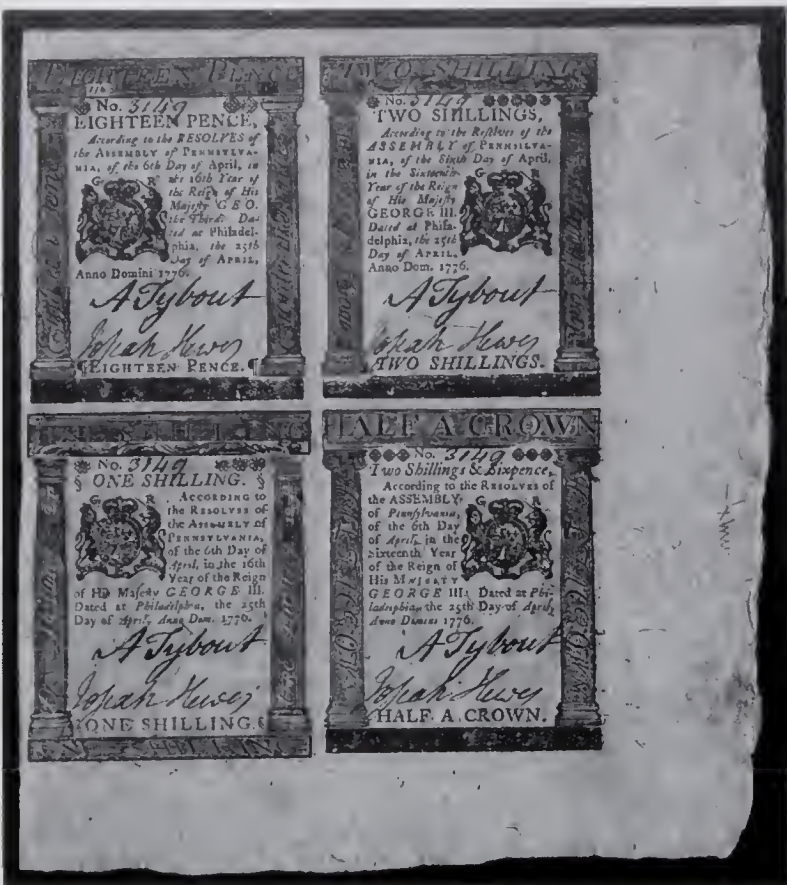 EIGHTEEN PENCE
No. 3149
EIGHTEEN PENCE,
According to the RESOLVES of
the ASSEMBLY of PENNSYLVA-
NIA, of the 6th Day of April, in
G R the 16th Year of
the Reign of His
Majesty GEO.
the Third. Da-
ted at Philadel-
phia, the 25th
Day of APRIL,
Anno Domini 1776.
A Tybout
Josiah Hewes
EIGHTEEN PENCE.
TWO SHILLING
No. 3149
TWO SHILLINGS,
According to the Resolves of the
ASSEMBLY of PENNSILVA-
NIA, of the Sixth Day of April,
in the Sixteenth
Year of the Reign G R
of His Majesty
GEORGE III.
Dated at Phila-
delphia, the 25th
Day of APRIL,
Anno Dom. 1776.
A Tybout
Josiah Hewes
TWO SHILLINGS.
No. 3149
§ ONE SHILLING. §
G R ACCORDING to
the RESOLVES of
the ASSEMBLY of
PENNSYLVANIA,
of the 6th Day of
April, in the 16th
Year of the Reign
of His Majesty GEORGE III.
Dated at Philadelphia, the 25th
Day of April, Anno Dom. 1776.
A Tybout
Josiah Hewes
ONE SHILLING.
HALF A CROWN
No. 3149
Two Shillings & Sixpence,
According to the RESOLVES of
the ASSEMBLY G R
of Pennsylvania,
of the 6th Day
of April, in the
Sixteenth Year
of the Reign of
His MAJESTY
GEORGE III. Dated at Phi-
ladelphia, the 25th Day of April,
Anno Domini 1776.
A Tybout
Josiah Hewes
HALF A CROWN.